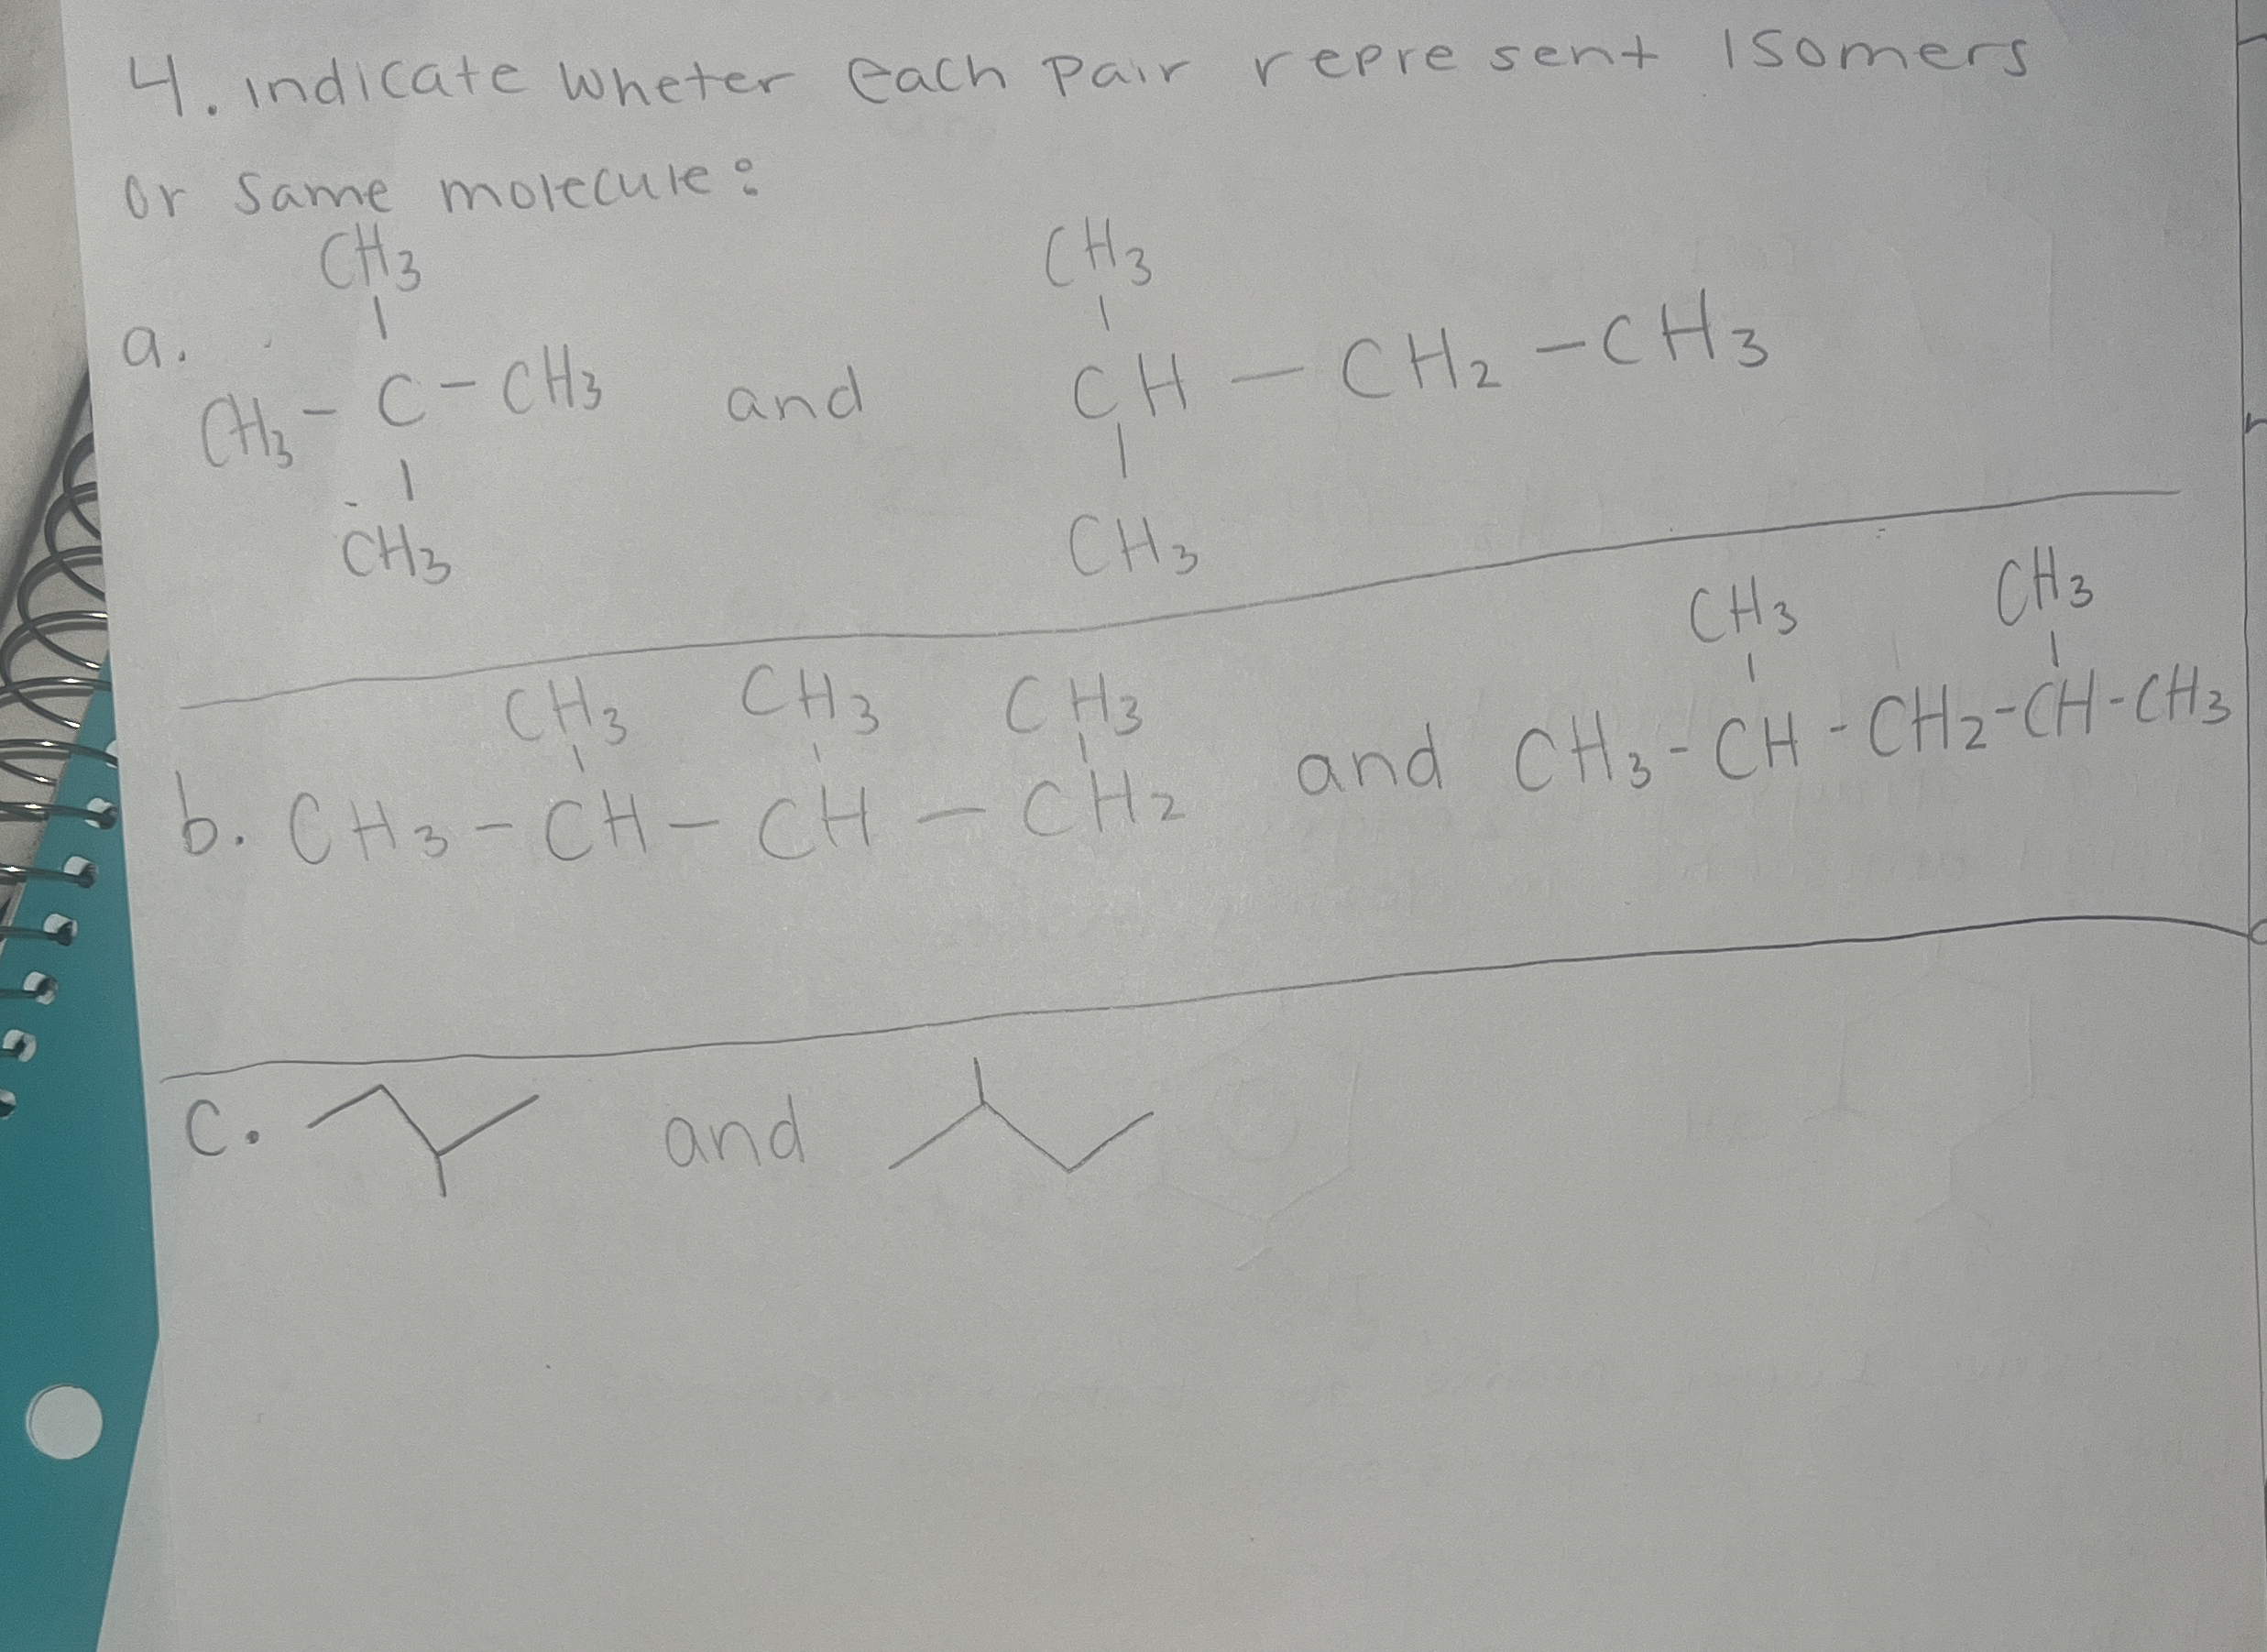 4. indicate wheter each pair represent Isomers
or same molecule:
CH3 CH3
a. CH3 - C - CH3 and CH - CH2 - CH3
CH3 CH3
CH3 CH3
CH3 CH3 CH3
b. CH3 - CH - CH - CH2 and CH3 - CH - CH2 - CH - CH3
c. and